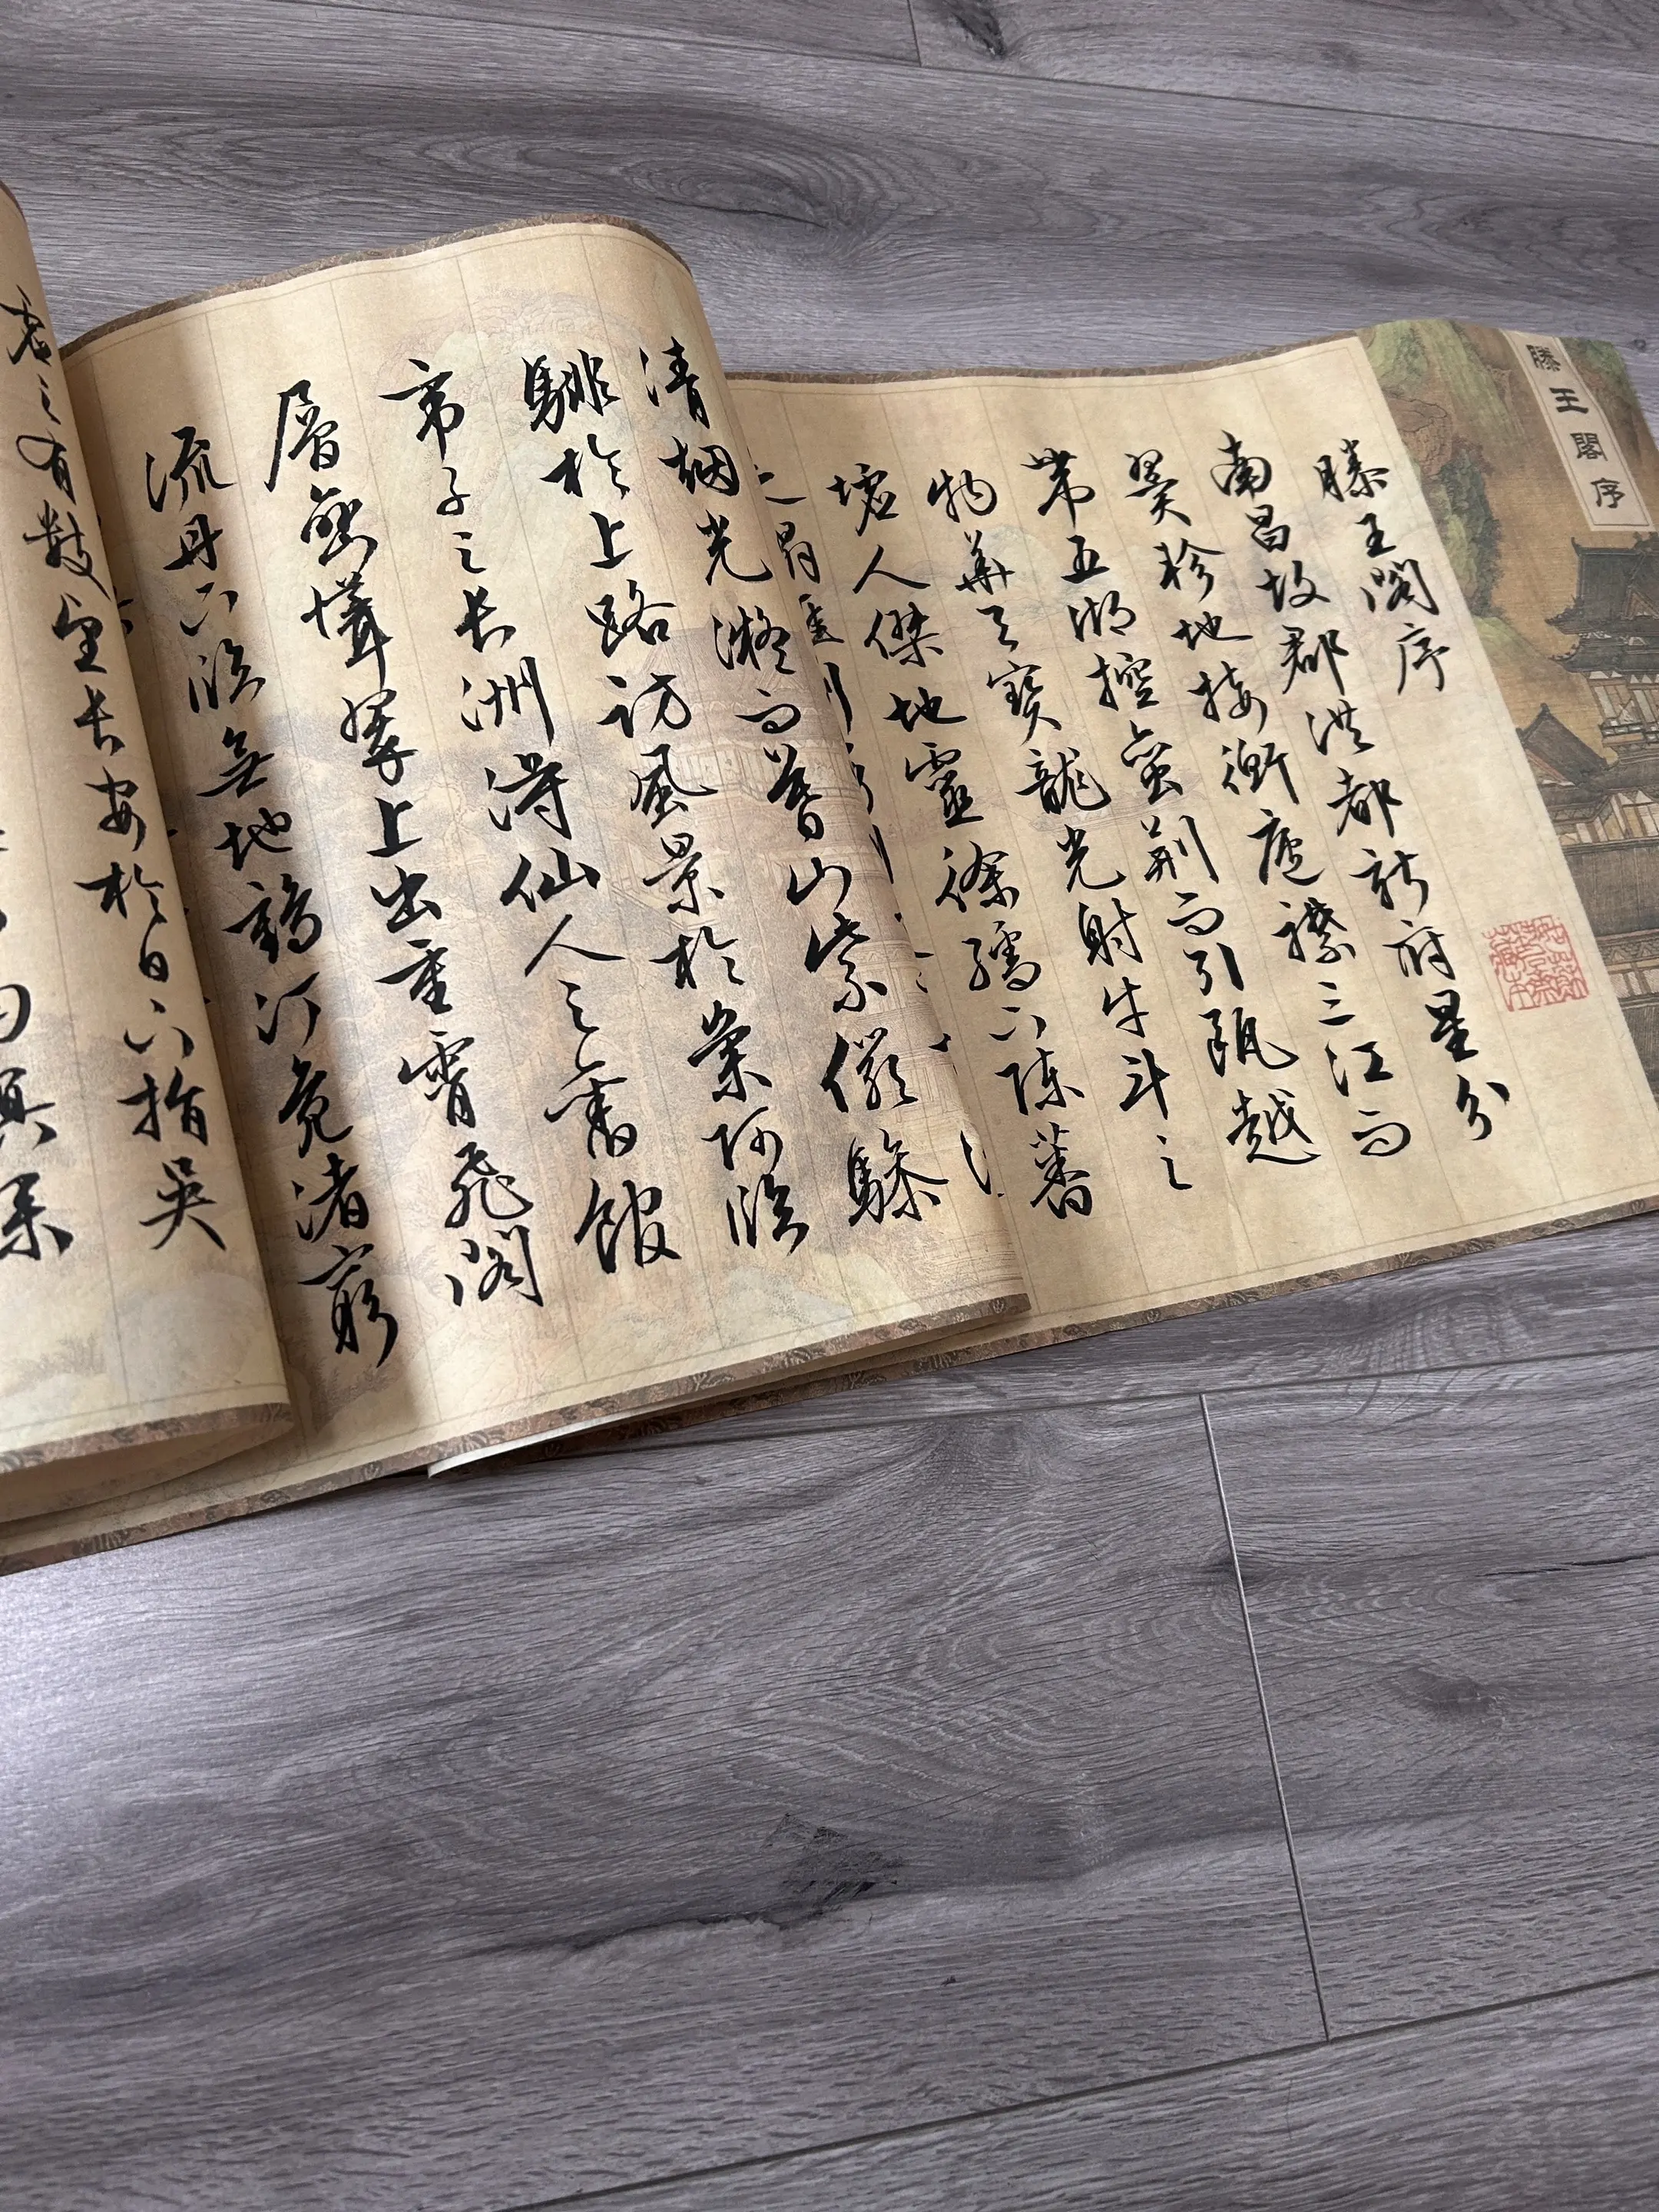 滕王閣序
滕王閣序
南昌故郡洪都新府星分
翼軫地接衡廬襟三江而
帶五湖控蠻荊而引甌越
物華天寶龍光射牛斗之
墟人傑地靈徐孺下陳蕃
清烟光凝而暮山紫儼驂
騑於上路訪風景於崇阿臨
帝子之長洲得仙人之舊館
層巒聳翠上出重霄飛閣
流丹下臨無地鶴汀鳧渚窮
虛之有數望長安於日下指吳